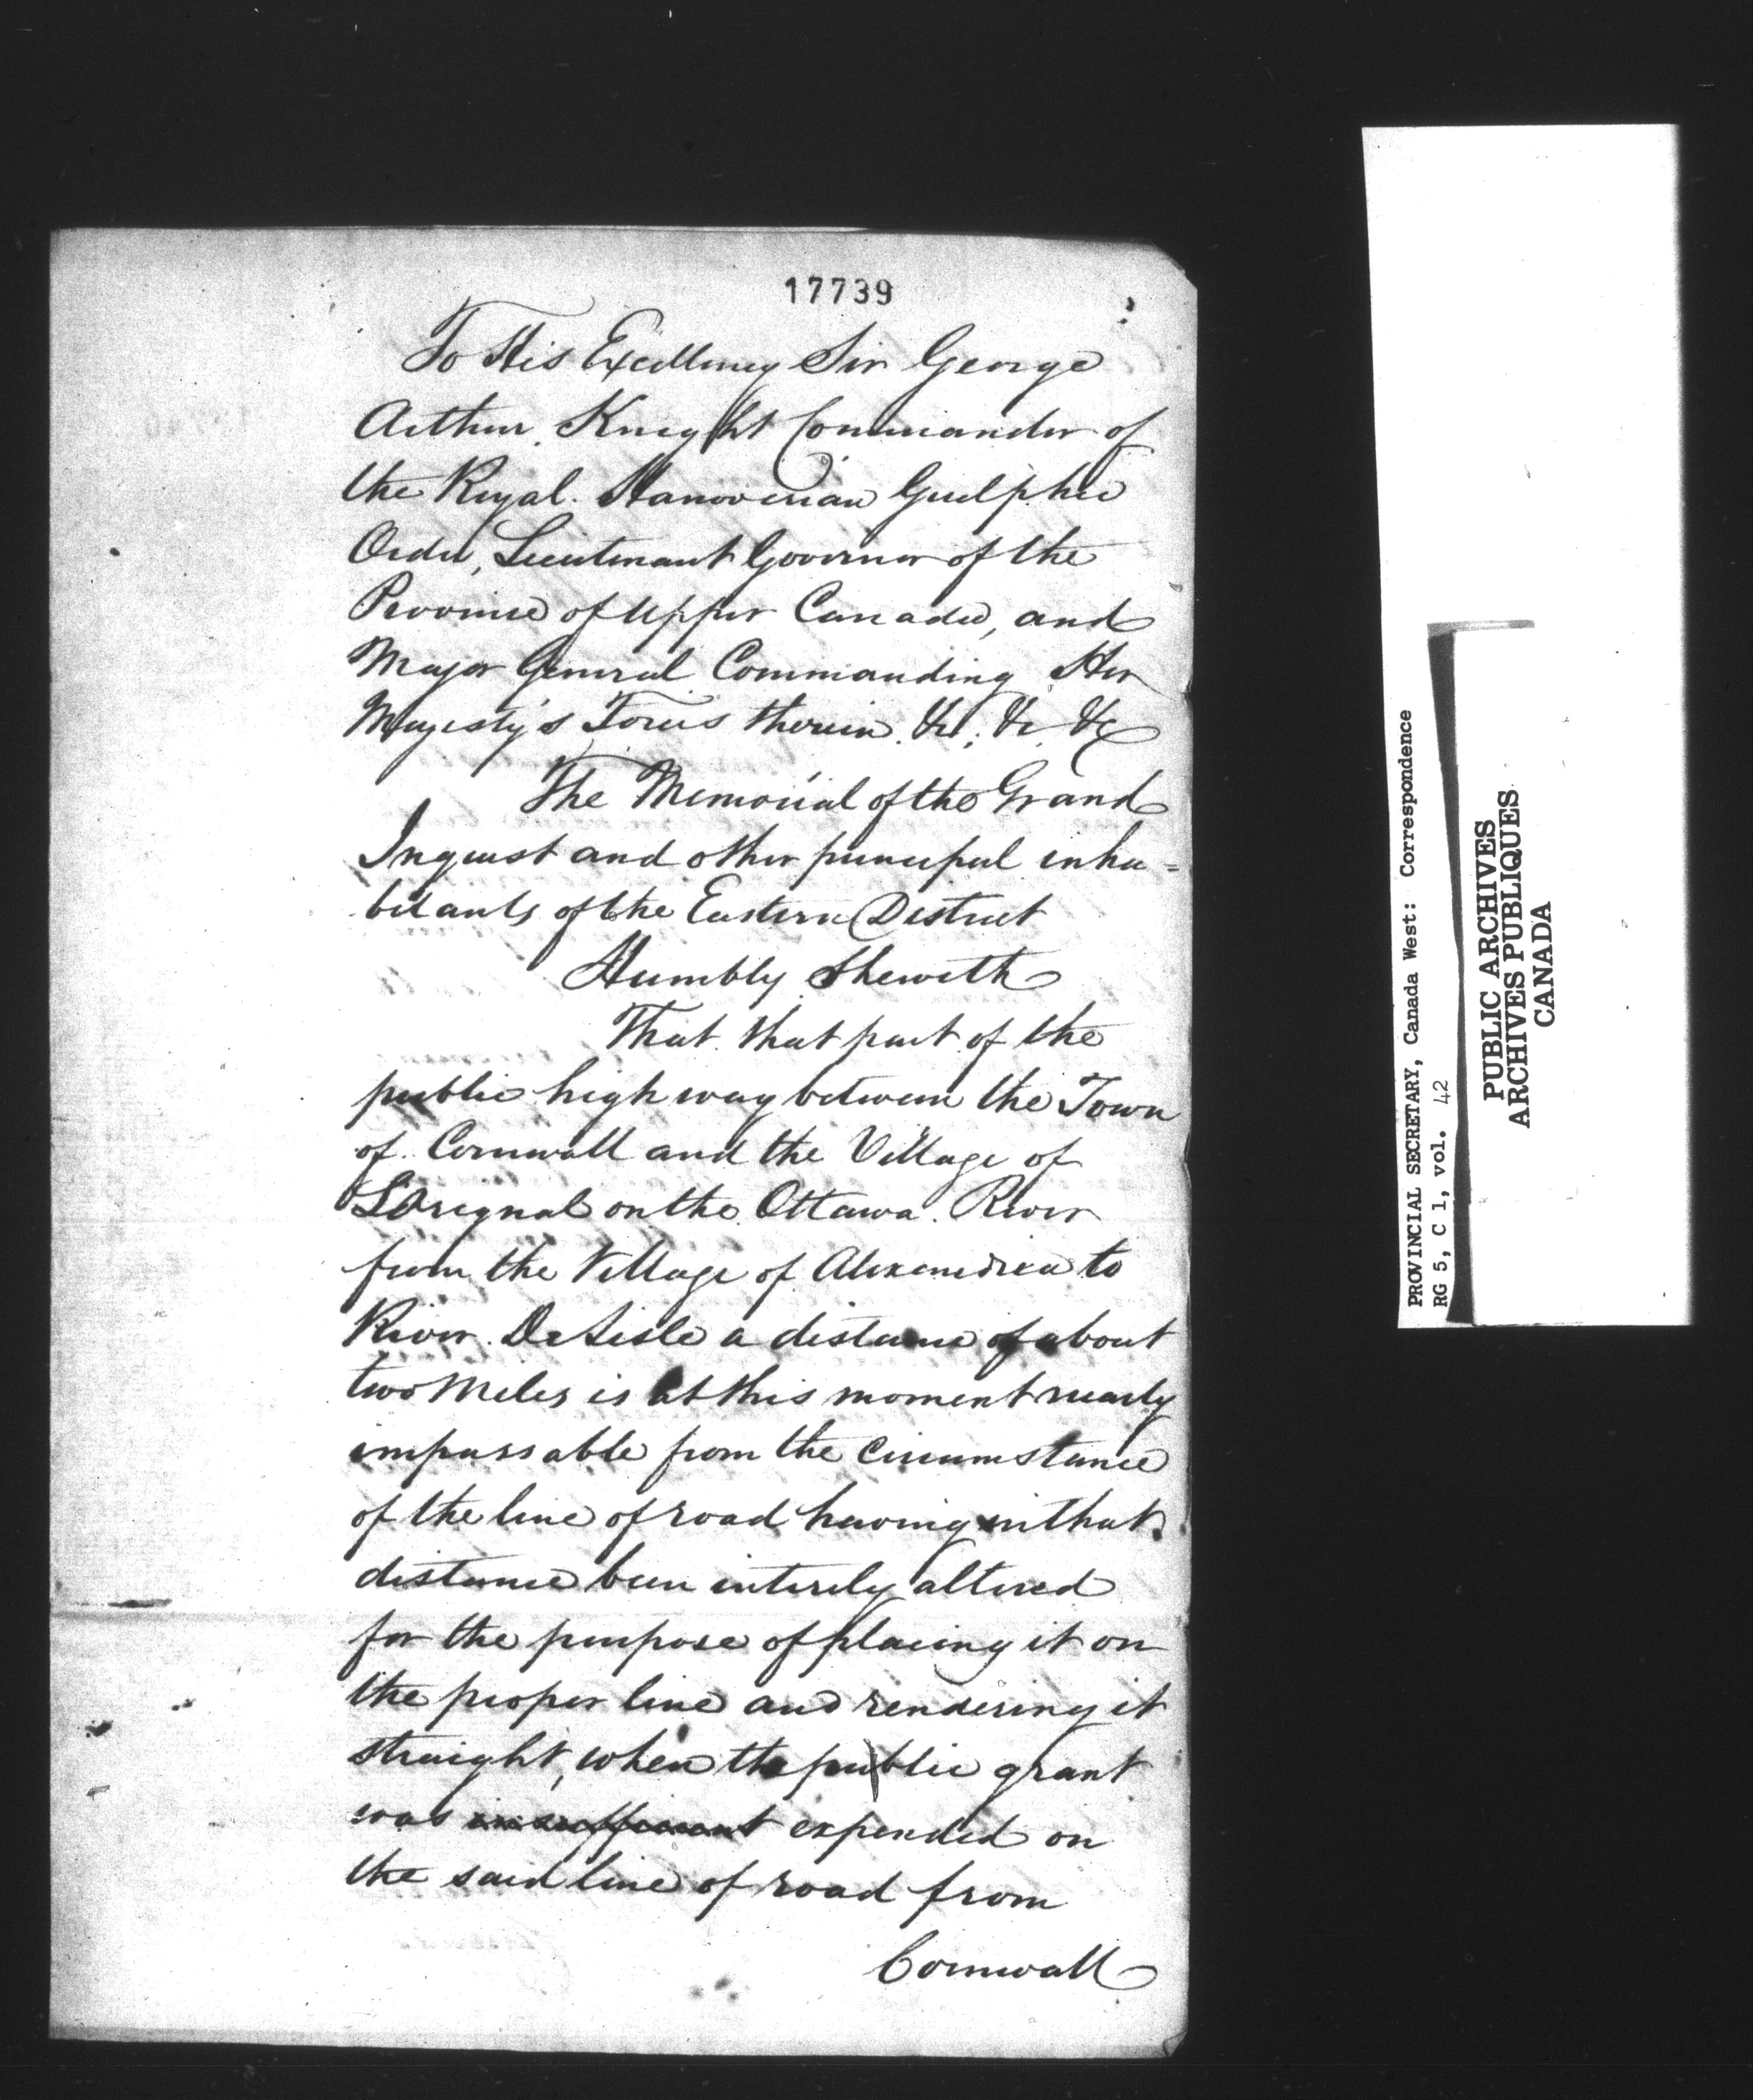 17739
To His Excellency Sir George
Arthur, Knight Commander of
the Royal Hanoverian Guelphic
Order, Lieutenant Governor of the
Province of Upper Canada, and
Major General Commanding Her
Majesty's Forces therein &c, &c &c
The Memorial of the Grand
Inquest and other principal inha=
bitants of the Eastern District
Humbly Sheweth
That that part of the
public high way between the Town
of Cornwall and the Village of
L'Orignal on the Ottawa River
from the Village of Alexandria to
River DeLisle a distance of about
two Miles is at this moment nearly
impassable from the circumstance
of the line of road having in that
distance been intirely altered
for the purpose of placing it on
the proper line and rendering it
straight, when the public grant
was insufficient expended on
the said line of road from
Cornwall
PROVINCIAL SECRETARY, Canada West: Correspondence
RG 5, C 1, vol. 42
PUBLIC ARCHIVES
ARCHIVES PUBLIQUES
CANADA